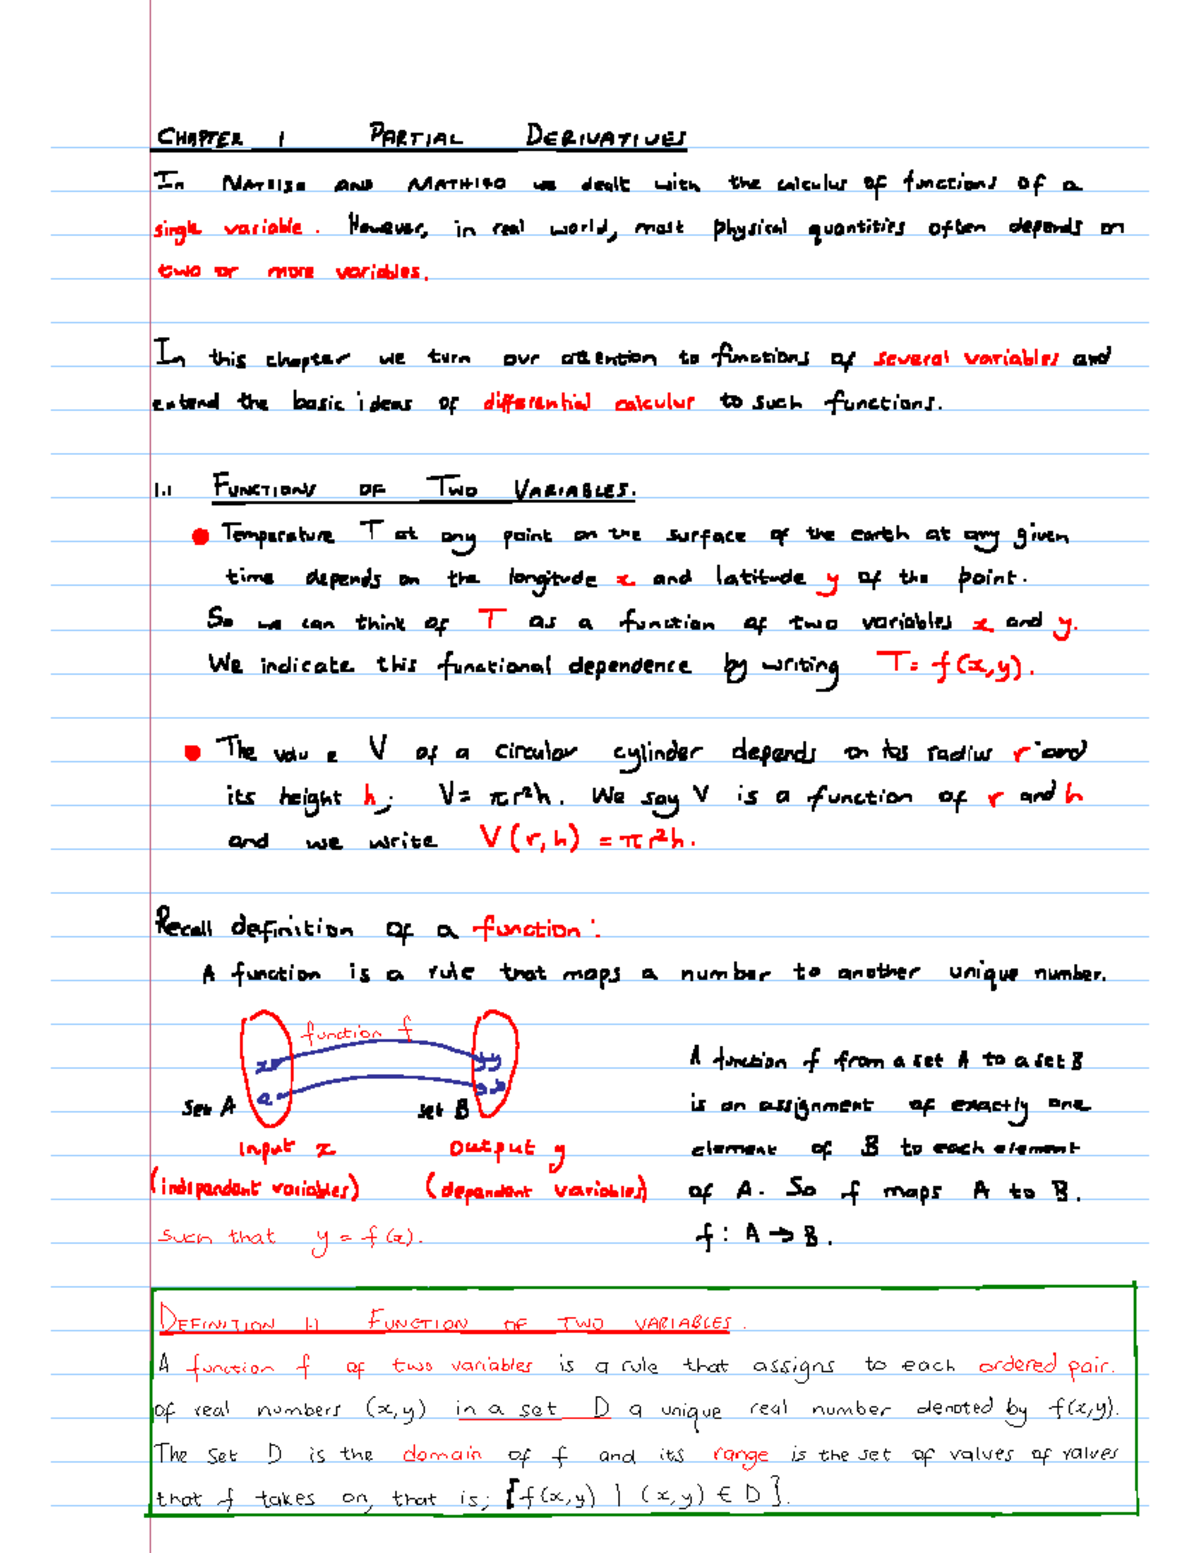 CHAPTER 1 PARTIAL DERIVATIVES
In AND we dealt with the calculus of functions of a
single variable. However, in real world, most physical quantities often depends on
two or more variables.
In this chapter we turn our attention to functions of several variables and
extend the basic ideas of differential calculus to such functions.
1.1 FUNCTIONS OF TWO VARIABLES.
Temperature T at any point on the surface of the earth at any given
time depends on the longitude x and latitude y of the point.
So we can think of T as a function of two variables x and y.
We indicate this functional dependence by writing T = f(x,y).
The V of a circular cylinder depends on its radius r and
its height h; V = πr²h. We say V is a function of r and h
and we write V(r,h) = πr²h.
Recall definition of a function:
A function is a rule that maps a number to another unique number.
function f
x y
a b
set A set B
Input x Output y
(independant variables) (dependant variables)
such that y = f(x).
A function f from a set A to a set B
is an assignment of exactly one
element of B to each element
of A. So f maps A to B.
f : A → B.
DEFINITION 1.1 FUNCTION OF TWO VARIABLES.
A function f of two variables is a rule that assigns to each ordered pair.
of real numbers (x,y) in a set D a unique real number denoted by f(x,y).
The set D is the domain of f and its range is the set of values of values
that f takes on, that is; {f(x,y) | (x,y) ∈ D}.